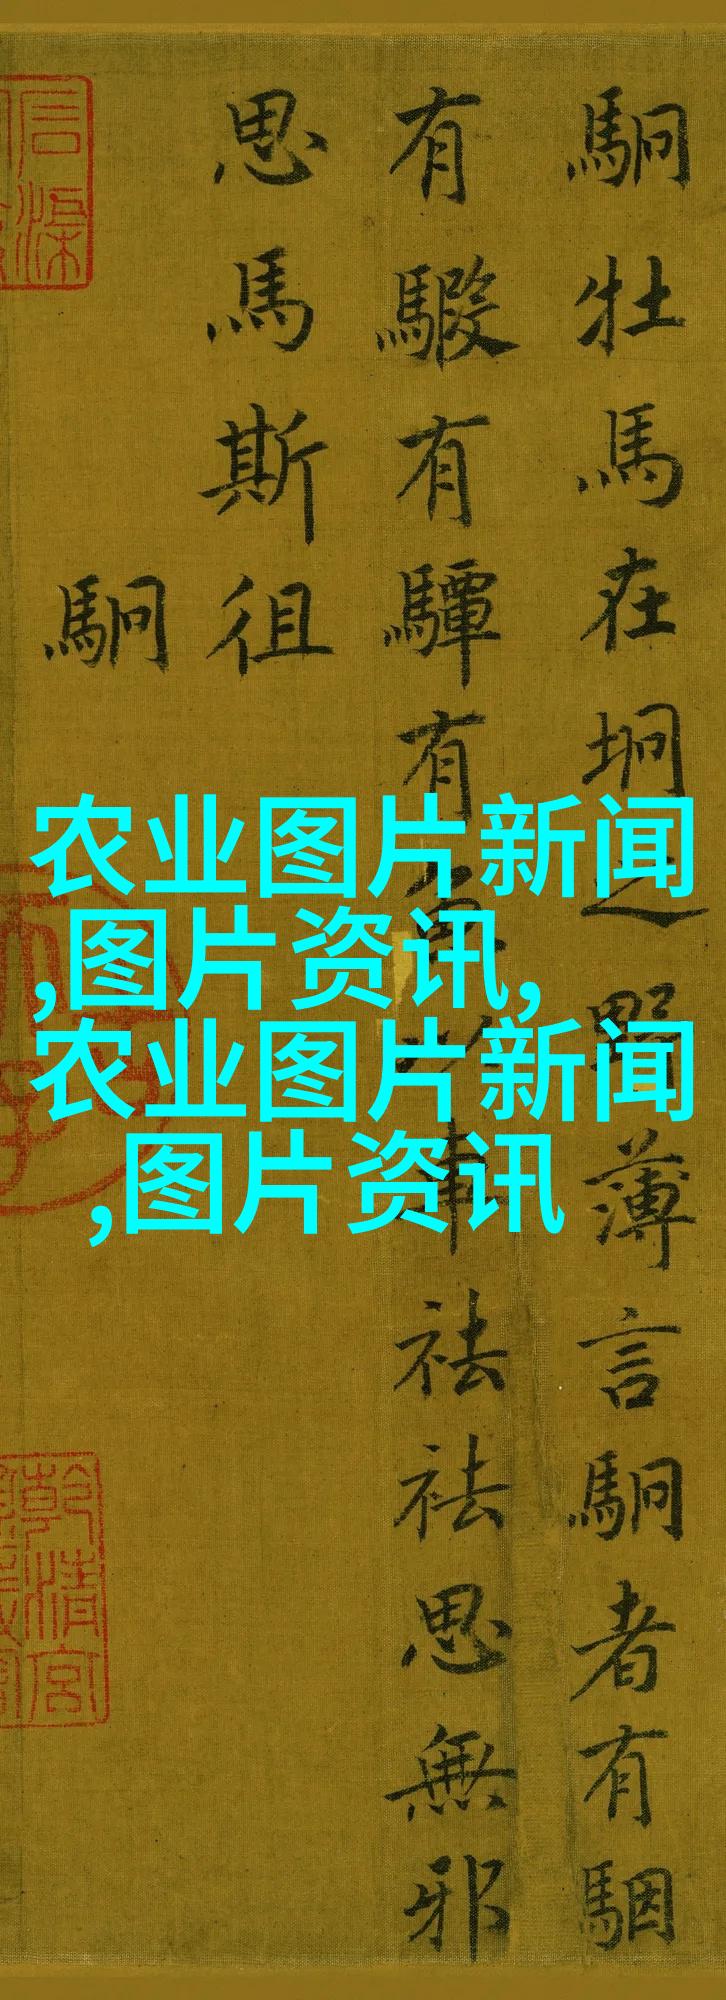 駉牡馬在坰之野薄言駉者有駰
有騢有驔有魚以車祛祛思無邪
思馬斯徂
駉
农业图片新闻
,图片资讯,
农业图片新闻
,图片资讯
乾清宮